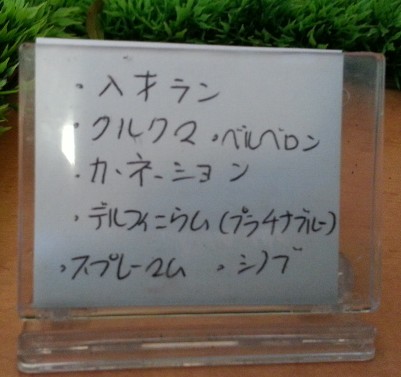 ・入才ラン
・クルクマ ・ベルベロン
・カーネーション
・デルフィニウム(プラチナブルー)
・スプレーマム ・シノブ